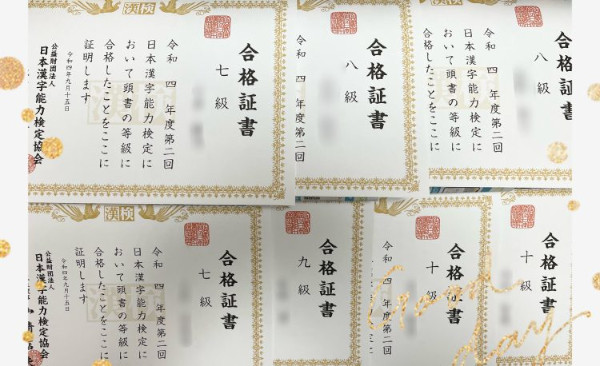 漢検
合格証書
七級
令和 四 年度第二回
日本漢字能力検定に
おいて頭書の等級に
合格したことをここに
証明します
令和四年九月十五日
公益財団法人
日本漢字能力検定協会
合格証書
八級
令和 四 年度第二回
合格証書
八級
令和 四 年度第二回
日本漢字能力検定に
おいて頭書の等級に
合格したことをここに
漢検
合格証書
七級
令和 四 年度第二回
日本漢字能力検定に
おいて頭書の等級に
合格したことをここに
証明します
令和四年九月十五日
公益財団法人
日本漢字能力検定協会
合格証書
九級
合格証書
十級
令和 四 年度第二回
合格証書
十級
Good
day